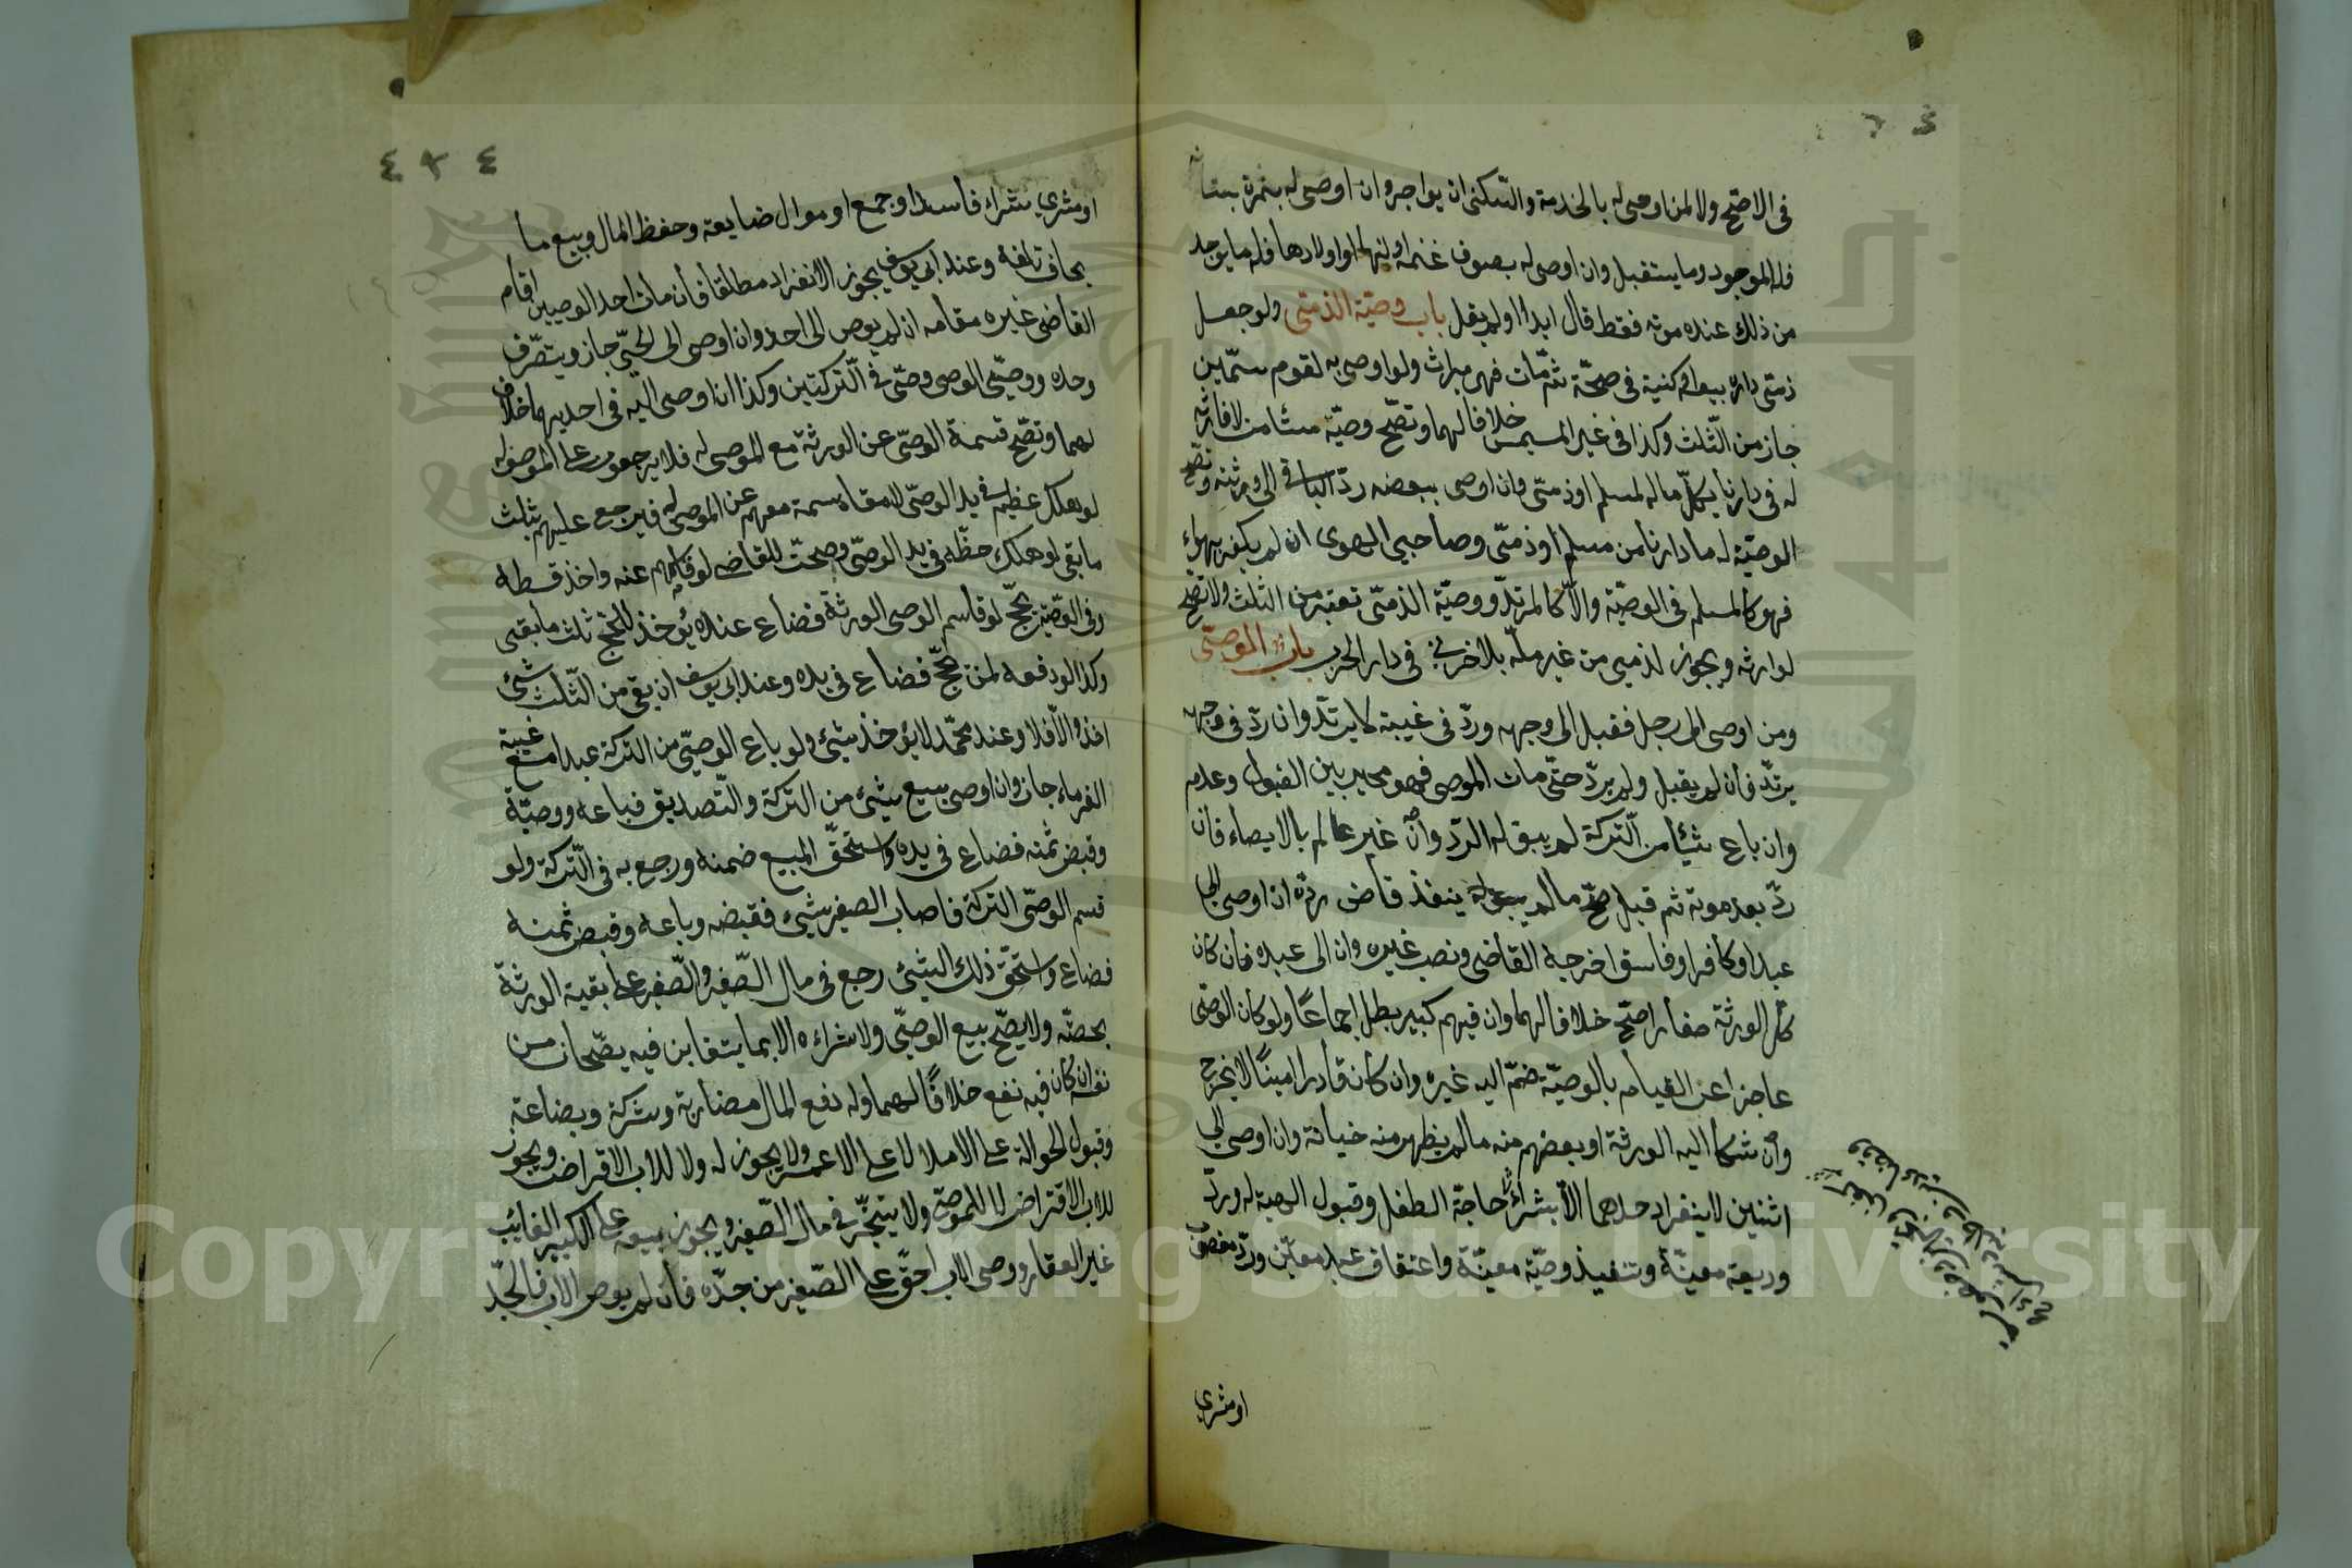 في الاصح ولا لمن اوصى له بالخدمة والسكنى ان يواجر وان اوصى له بثمرة بستانه
فله الموجود وما يستقبل وان اوصى له بصوف غنمه ولبنها او اولادها فله ما يوجد
من ذلك عنده موته فقط قال ابدا او لم يقل باب وصية الذمي ولو جعل
ذمي داره بيعة او كنيسة في صحة ثم مات فهي ميراث ولو اوصى به لقوم مسمين
جاز من الثلث وكذا في غير المسمين خلافا لهما وتصح وصية مستامن لا وارث
له في دارنا بكل ماله لمسلم او ذمي وان اوصى ببعضه رد الباقي الى ورثته وتصح
الوصية له ما دارنا من مسلم او ذمي وصاحب الهوى ان لم يكفر بهواء
فهو كالمسلم في الوصية والا كالمرتد ووصية الذمي تعتبر من الثلث ولا تصح
لوارثه ويجوز لذمي من غير ملة بلا خر في دار الحرب باب الموصى
ومن اوصى الى رجل فقبل الى وجهه ورد في غيبة لا يرتد وان رد في وجهه
يرتد فان لم يقبل ولم يرد حتى مات الموصى فهو مخير بين القبول وعدمه
وان باع شيئا من التركة لم يبق له الرد وان غير عالم بالايصاء فان
رد بعد موته ثم قبل صح ما لم ينفذ قاض رده ان اوصى الى
عبد او كافر او فاسق اخرجه القاضي ونصب غيره وان الى عبده فان كان
كل الورثة صغارا صح خلافا لهما وان فيهم كبير بطل اجماعا ولو كان الوصى
عاجزا عن القيام بالوصية ضم اليه غيره وان كان قادرا امينا لا يخرج
وان شكا اليه الورثة او بعضهم منه ما لم يظهر منه خيانة وان اوصى الى
اثنين لا ينفرد احدهما الا بشراء حاجة الطفل وقبول الهبة له ورد
وديعة معينة وتنفيذ وصية معينة واعتقاق عبد معين ورد مغصوب
او مشري
٤٢٤
او مشري شراء فاسدا وجمع اموال ضايعة وحفظ المال وبيع ما
يخاف تلفه وعند ابي يوسف يجوز الانفراد مطلقا فان مات احد الوصيين اقام
القاضي غيره مقامه ان لم يوص الى احد وان اوصى الى الحي جاز ويتصرف
وحده ووصي الوصى وصي في التركتين وكذا ان اوصى اليه في احديهما خلافا
لهما وتصح قسمة الوصي عن الورثة مع الموصى له فلا يرجعون على الموصى له
لو هلك حظهم في يد الوصي لا مقاسمة معهم عن الموصى له فيرجع عليهم بثلث
ما بقى لو هلك حظه في يد الوصي وصحت للقاضي لو قاسمهم عنه واخذ قسطه
وفي الوصية بحج لو قاسم الوصي الورثة فضاع عنده يؤخذ للحج ثلث ما بقى
وكذا لو دفعه لمن يحج فضاع في يده وعند ابي يوسف ان بقي من الثلث شيئ
اخذ والا فلا وعند محمد لا يؤخذ شيئ ولو باع الوصي من التركة عبدا مع غيبة
الغرماء جاز وان اوصى ببيع شيئ من التركة والتصديق فباعه ووصية
وقبض ثمنه فضاع في يده واستحق المبيع ضمنه ورجع به في التركة ولو
قسم الوصي التركة فاصاب الصغير شيئ فقبضه وباعه وقبض ثمنه
فضاع واستحق ذلك الشيئ رجع في مال الصغير والصغير على بقية الورثة
بحصته ولا يصح بيع الوصي ولا شراءه الا بما يتغابن فيه يصحان من
نفسه ان كان فيه نفع خلافا لهما وله دفع المال مضاربة وشركة وبضاعة
وقبول الحوالة على الاملا لا على الاعسر ولا يجوز له ولا للاب الاقراض ويجوز
للاب الاقتراض لا للموصى ولا يتجر في مال الصغير ويجوز بيعه على الكبير الغايب
غير العقار ووصى الاب احق على الصغير من جده فان لم يوص الاب فالجد
Copyright © King Saud University